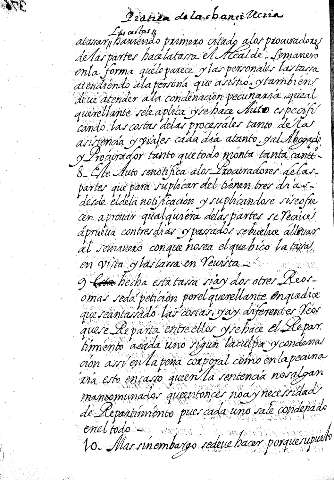 Pratica de la chancilleria
los autos a
atassar, haviendo primero citado alos procuradores
de las partes hace la tassa el Alcalde Semanero
en la forma que le parece y las personales las tassa
atendiendo ala persona que asistio y tambien
dice atender a la condenacion pecuniaria qual
querellante se le aplica y se hace Auto especifi
cando las costas de las procesales tanto de la
asistencia y viajes cada dia atento, y al Abogado
y Procurador tanto que todo monta tanta canti
8. Este Auto se notifica alos Procuradores de las
partes que para suplicar del tienen tres dias
desde el dela notificacion y suplicandose si se ofre
cer a provar qualquiera de las partes se recive
a prueva con tres dias y passados se buelve a llevar
al semanero con que no sea el que hizo la tassa
en vista y las tassa en Revista
9. hecha esta tassa si ay dos o tres Reos
o mas se da peticion por el querellante en que dice
que se an tassado las costas, y ay diferentes Reos
que se Reparta entre ellos y se hace el Repar
timiento a cada uno sigun la culpa y condena
cion assi en la pena corporal como en la pecunia
ria esto en caso que en la sentencia no salgan
mancomunados que entonces no ay necessidad
de Repartimiento pues cada uno sale condenado
en el todo
10. Mas sin embargo se deve hacer porque supuesto